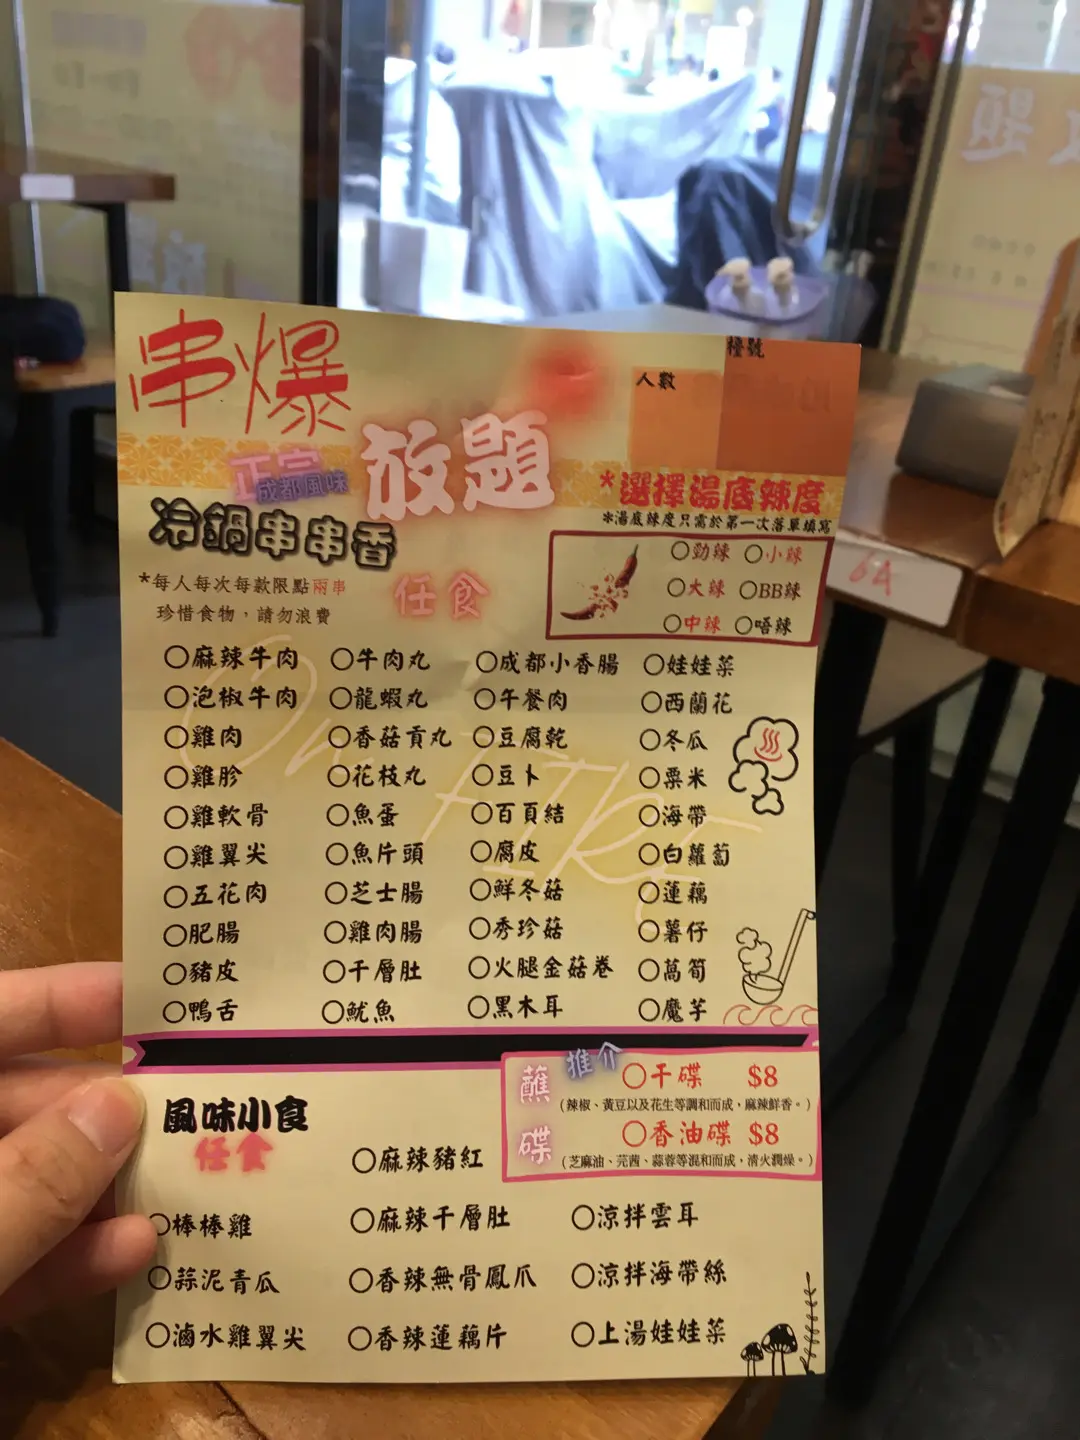 串爆
檯號
人數
放題
正宗
成都風味
*選擇湯底辣度
*湯底辣度只需於第一次落單填寫
冷鍋串串香
任食
*每人每次每款限點兩串
珍惜食物，請勿浪費
○勁辣 ○小辣
○大辣 ○BB辣
○中辣 ○唔辣
6A
○麻辣牛肉 ○牛肉丸 ○成都小香腸 ○娃娃菜
○泡椒牛肉 ○龍蝦丸 ○午餐肉 ○西蘭花
○雞肉 ○香菇貢丸 ○豆腐乾 ○冬瓜
○雞胗 ○花枝丸 ○豆卜 ○粟米
○雞軟骨 ○魚蛋 ○百頁結 ○海帶
○雞翼尖 ○魚片頭 ○腐皮 ○白蘿蔔
○五花肉 ○芝士腸 ○鮮冬菇 ○蓮藕
○肥腸 ○雞肉腸 ○秀珍菇 ○薯仔
○豬皮 ○千層肚 ○火腿金菇卷 ○萵筍
○鴨舌 ○魷魚 ○黑木耳 ○魔芋
On FIRE
風味小食
任食
蘸碟
推介
○干碟 $8
(辣椒、黃豆以及花生等調和而成，麻辣鮮香。)
○香油碟 $8
(芝麻油、芫茜、蒜蓉等混和而成，清火潤燥。)
○麻辣豬紅
○棒棒雞 ○麻辣千層肚 ○涼拌雲耳
○蒜泥青瓜 ○香辣無骨鳳爪 ○涼拌海帶絲
○滷水雞翼尖 ○香辣蓮藕片 ○上湯娃娃菜
題